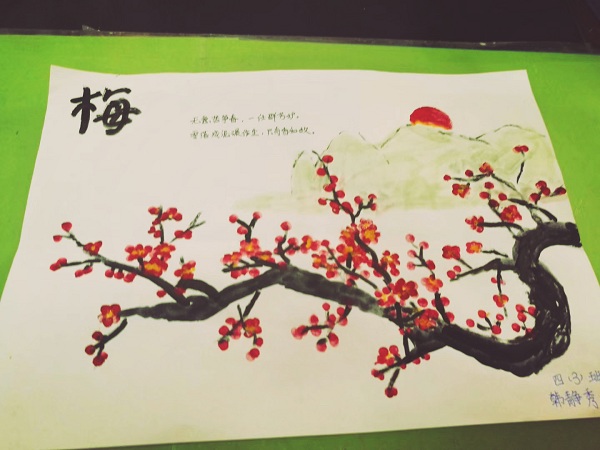 梅
无意苦争春，一任群芳妒。
零落成泥碾作尘，只有香如故。
四（3）班
韩静秀